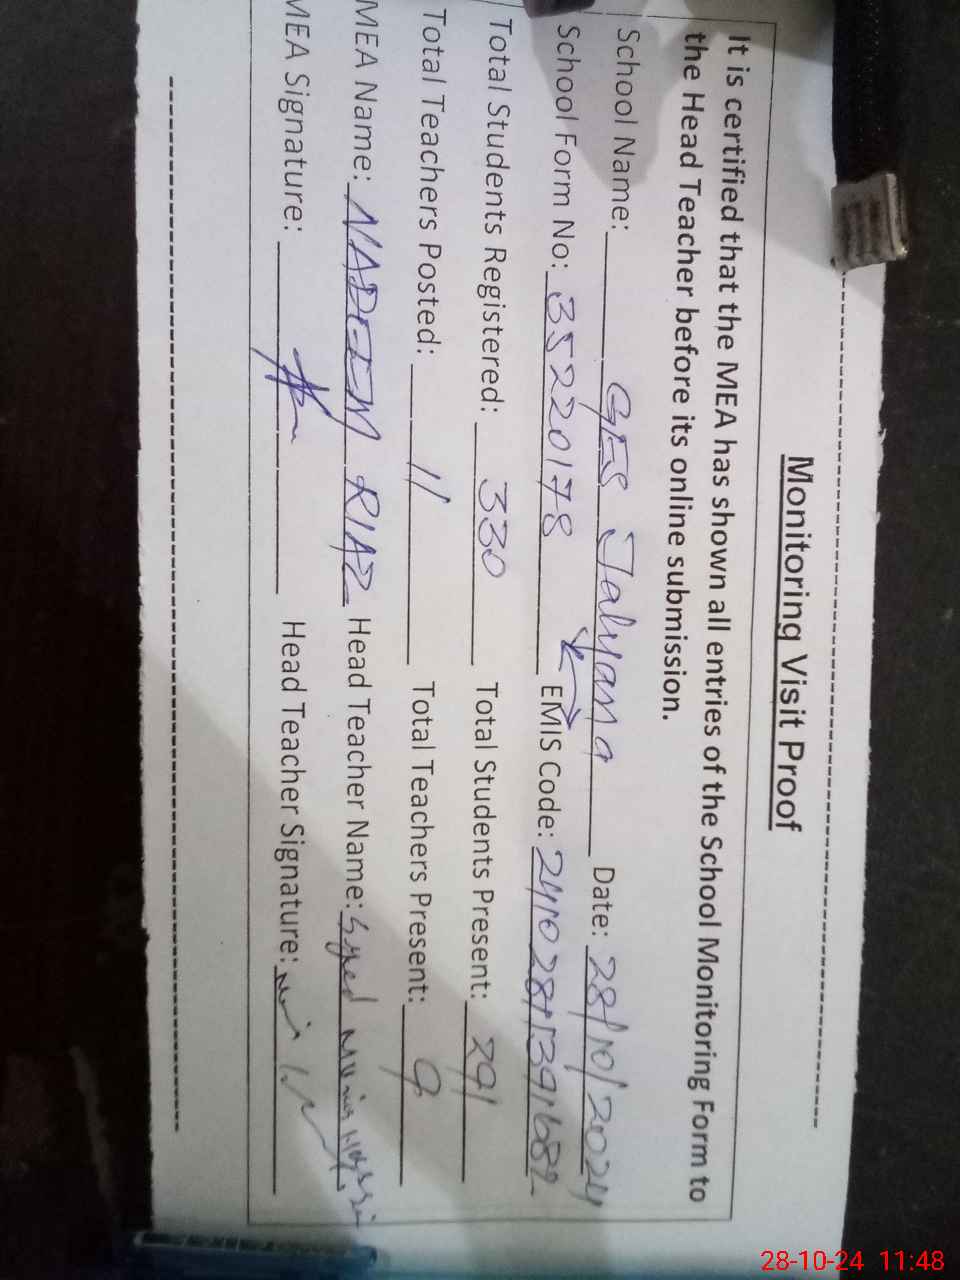 Monitoring Visit Proof
It is certified that the MEA has shown all entries of the School Monitoring Form to
the Head Teacher before its online submission.
School Name: GES Jalyana Date: 28/10/2024
School Form No: 3522017-8 EMIS Code:
Total Students Registered: 330 Total Students Present: 291
Total Teachers Posted: 11 Total Teachers Present: 9
MEA Name: NADEEM RIAZ Head Teacher Name: Syed
MEA Signature: Head Teacher Signature:
28-10-24 11:48